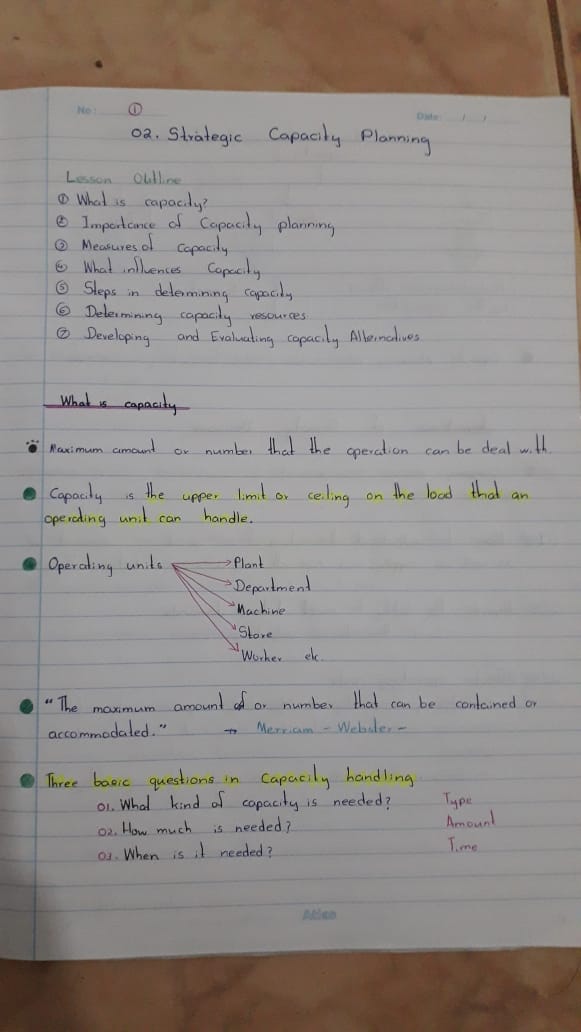 No: ①
Date: / /
02. Strategic Capacity Planning
Lesson Outline
① What is capacity?
② Importance of Capacity planning
③ Measures of Capacity
④ What influences Capacity
⑤ Steps in determining capacity
⑥ Determining capacity resources
⑦ Developing and Evaluating capacity Alternatives
What is capacity
Maximum amount or number that the operation can be deal with.
Capacity is the upper limit or ceiling on the load that an
operating unit can handle.
Operating units → Plant
Department
Machine
Store
Worker etc.
"The maximum amount of or number that can be contained or
accommodated." → Merriam - Webster -
Three basic questions in Capacity handling
01. What kind of capacity is needed? Type
02. How much is needed? Amount
03. When is it needed? Time
Atlas